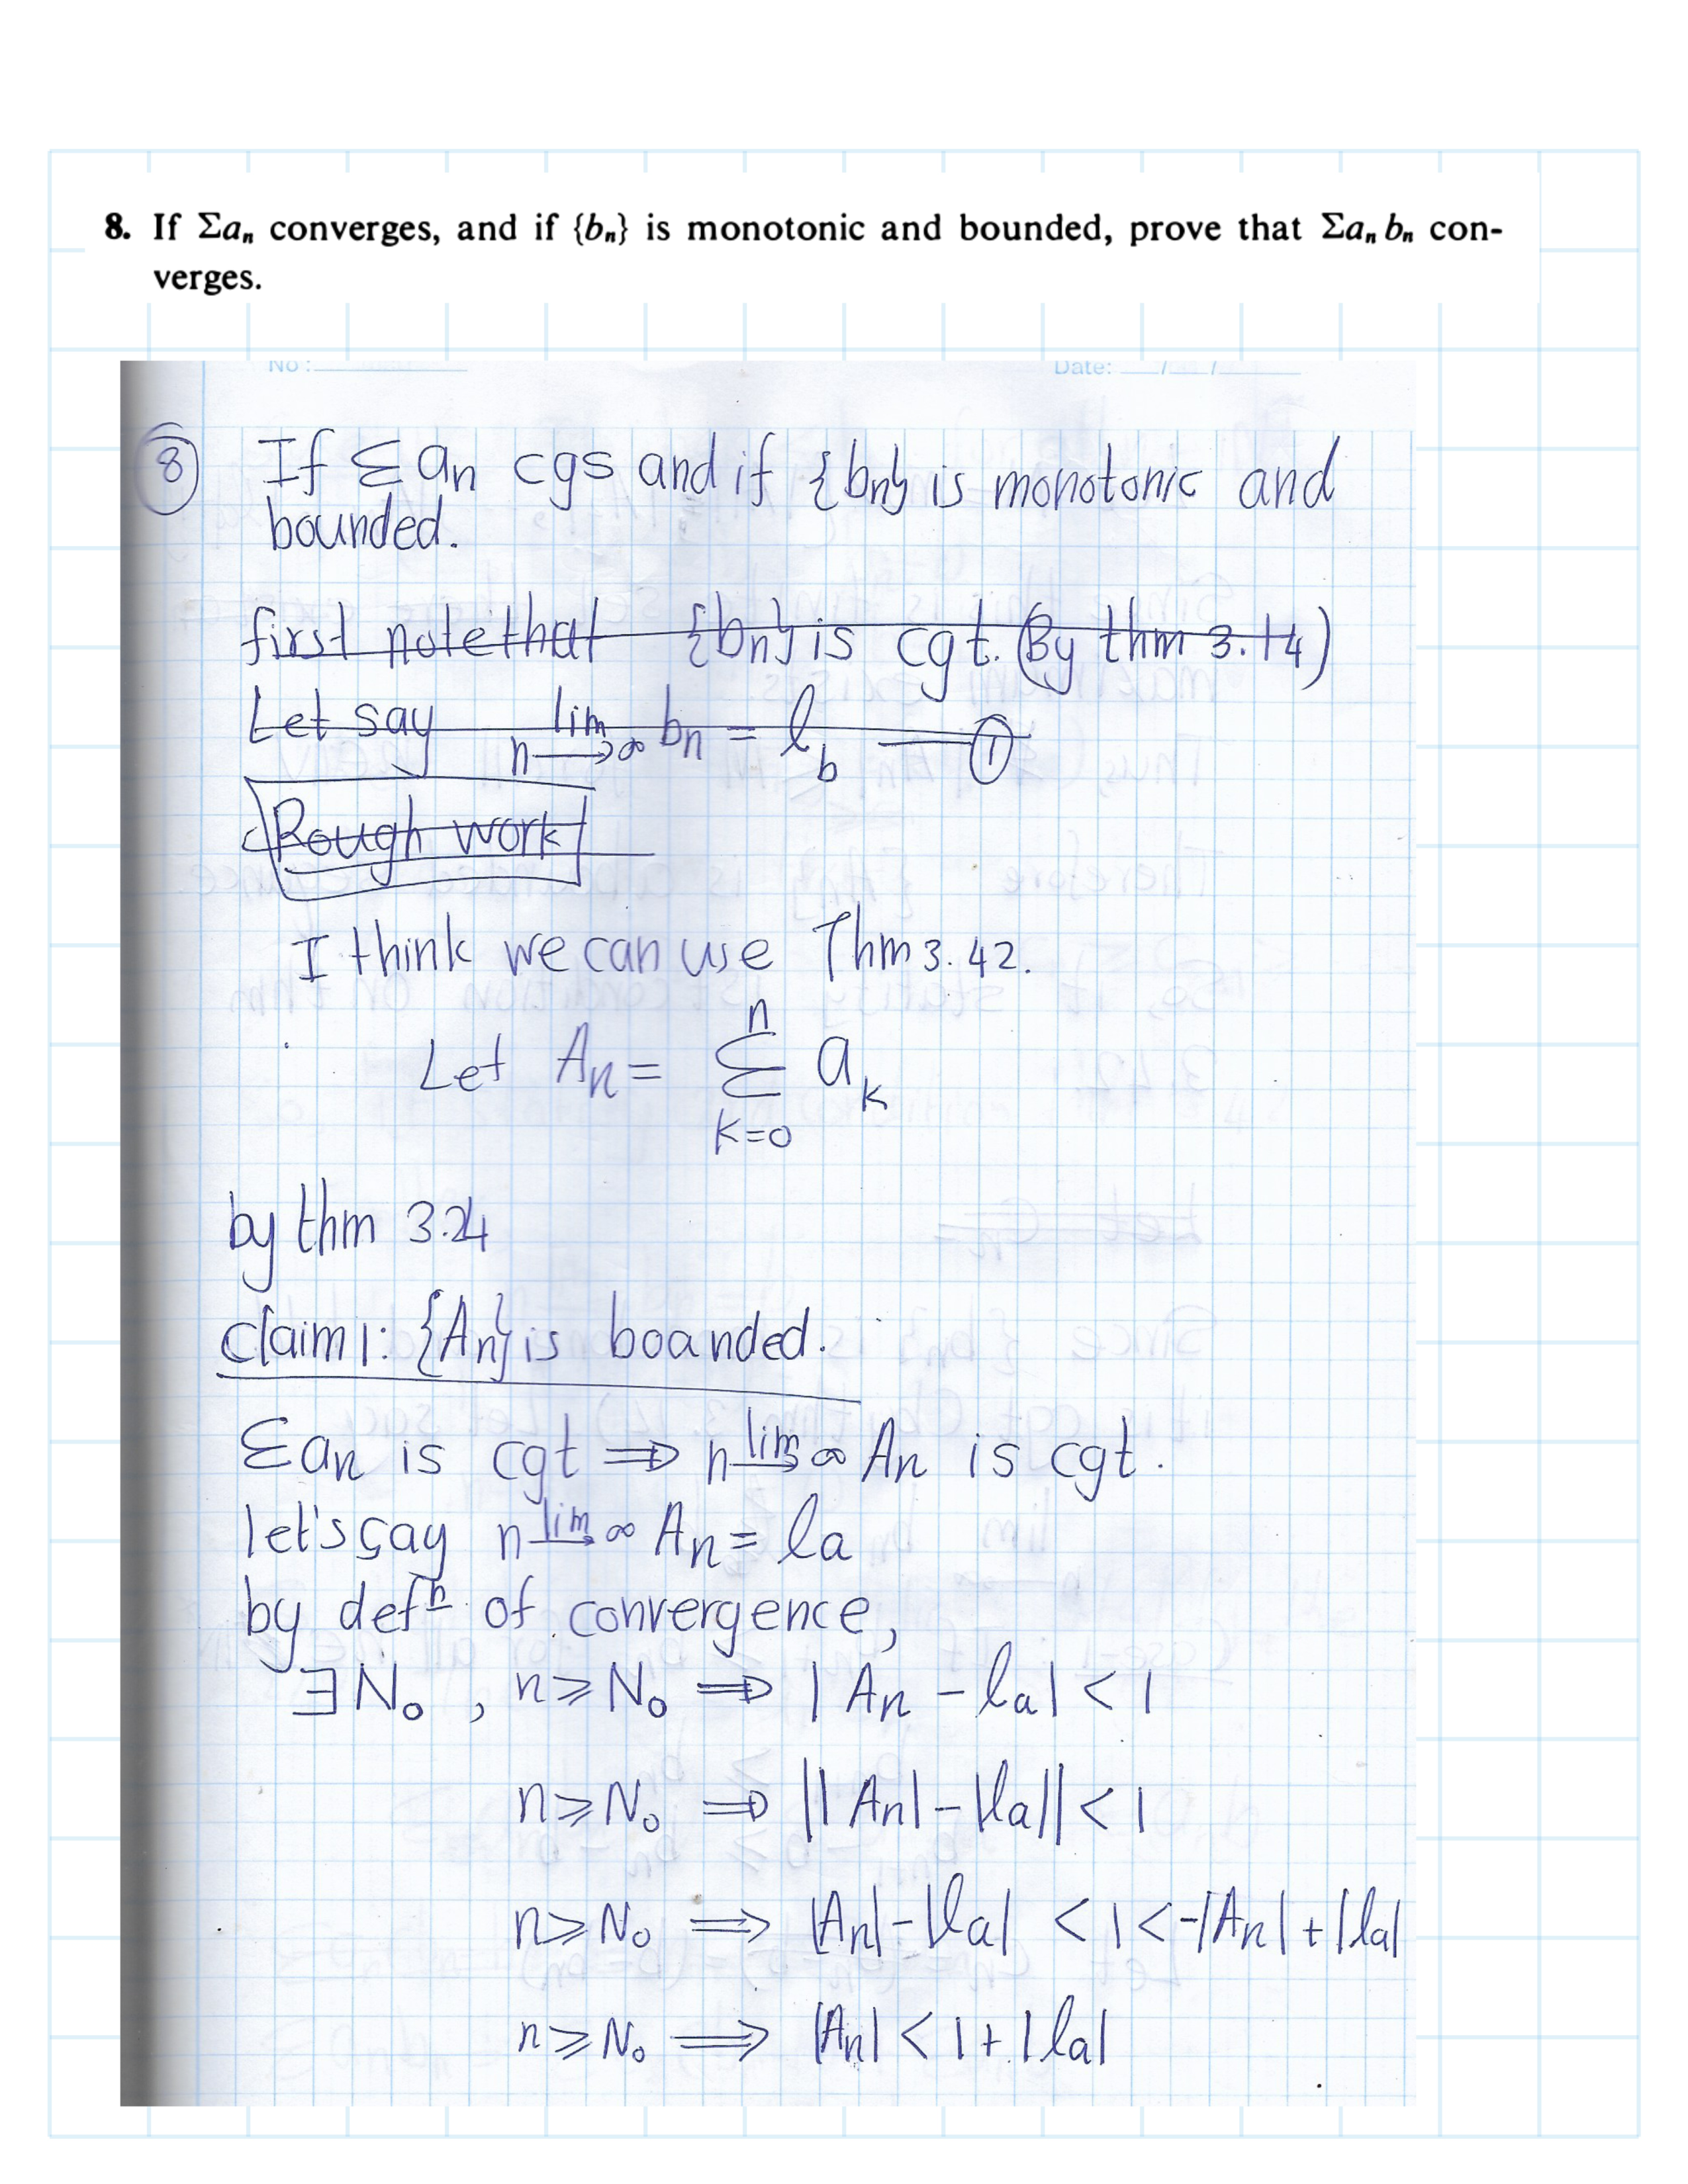 8. If Σaₙ converges, and if {bₙ} is monotonic and bounded, prove that Σaₙ bₙ con-
verges.
No : Date: / /
⑧ If Σ aₙ cgs and if {bₙ} is monotonic and
bounded.
first note that {bₙ} is cgt. (By thm 3.14)
Let say lim n→∞ bₙ = l_b —— ①
Rough work
I think we can use Thm 3.42.
Let Aₙ = Σ_{k=0}^{n} a_k
by thm 3.24
claim 1: {Aₙ} is boanded.
Σaₙ is cgt ⇒ lim n→∞ Aₙ is cgt.
let's say lim n→∞ Aₙ = la
by defⁿ of convergence,
∃ N₀ , n ≥ N₀ ⇒ | Aₙ - la | < 1
n ≥ N₀ ⇒ ||Aₙ| - |la|| < 1
n ≥ N₀ ⇒ |Aₙ| - |la| < 1 < -|Aₙ| + |la|
n ≥ N₀ ⇒ |Aₙ| < 1 + |la|